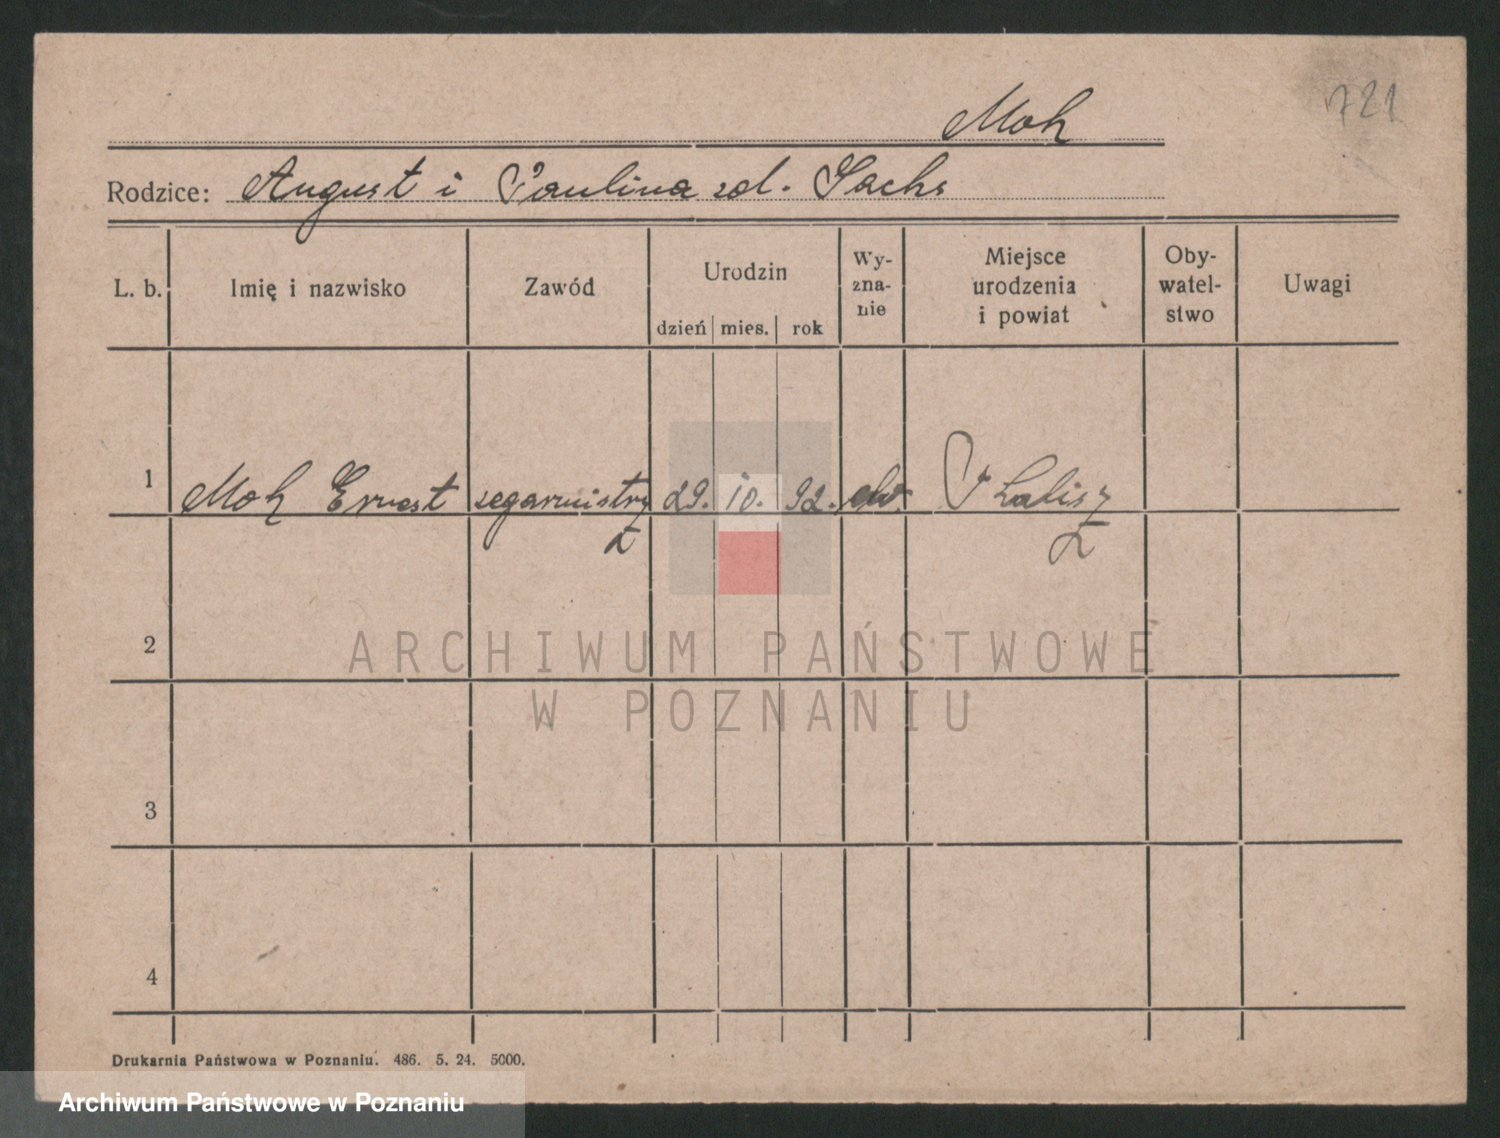 721
Moh
Rodzice: August i Paulina zd. Sachs
L. b. Imię i nazwisko Zawód Urodzin dzień mies. rok Wy-zna-nie Miejsce urodzenia i powiat Oby-watel-stwo Uwagi
1 Moh Ernest zegarmistrz 29. 10. 92. ew.
2
3
4
ARCHIWUM PAŃSTWOWE
W POZNANIU
Drukarnia Państwowa w Poznaniu. 486. 5. 24. 5000.
Archiwum Państwowe w Poznaniu